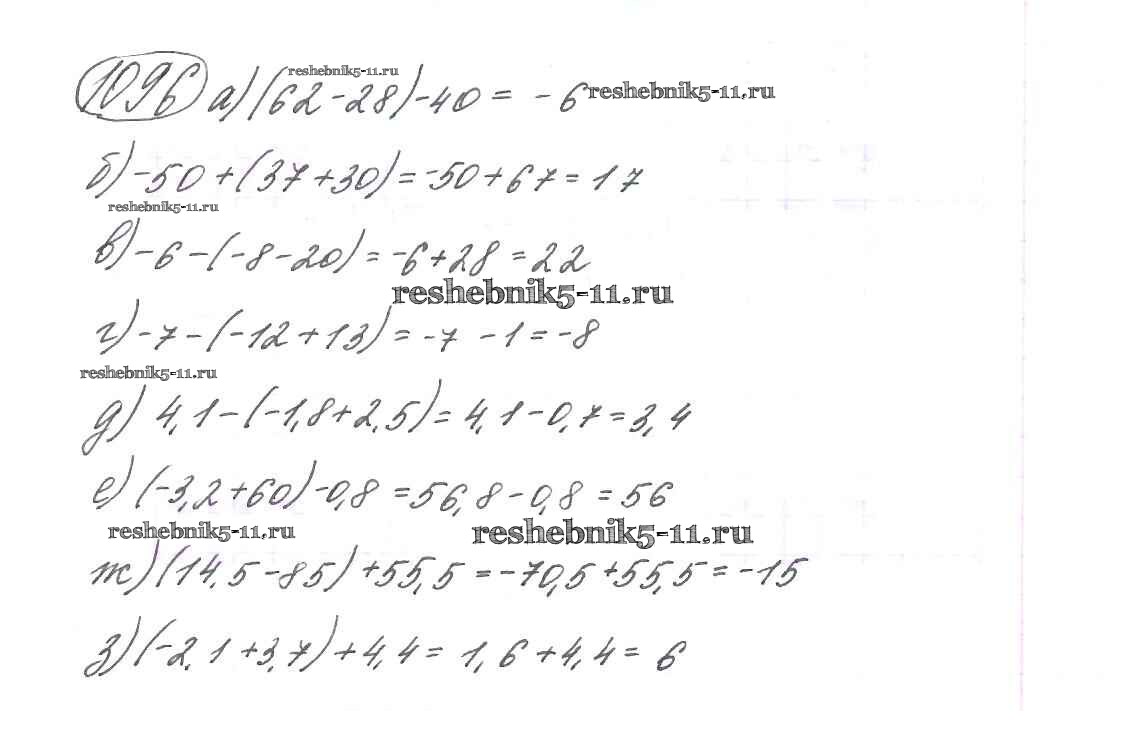 reshebnik5-11.ru
1096 а) (62-28)-40 = -6 reshebnik5-11.ru
б) -50+(37+30)=-50+67=17
reshebnik5-11.ru
в) -6-(-8-20)=-6+28=22
reshebnik5-11.ru
г) -7-(-12+13)=-7-1=-8
reshebnik5-11.ru
д) 4,1-(-1,8+2,5)=4,1-0,7=3,4
е) (-3,2+60)-0,8=56,8-0,8=56
reshebnik5-11.ru reshebnik5-11.ru
ж) (14,5-85)+55,5=-70,5+55,5=-15
з) (-2,1+3,7)+4,4=1,6+4,4=6